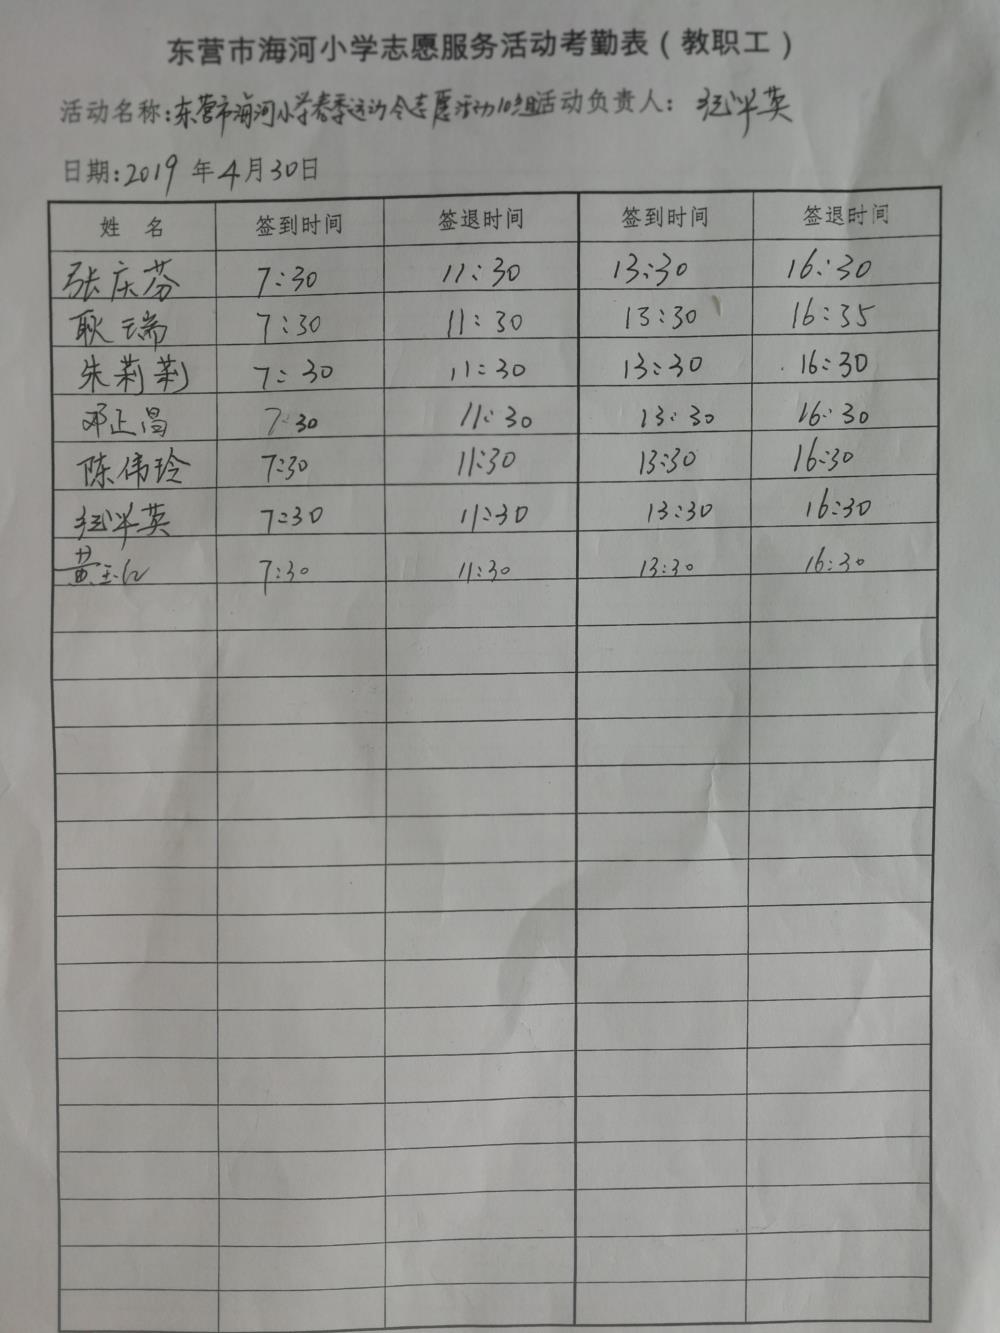 东营市海河小学志愿服务活动考勤表（教职工）
活动名称:东营市海河小学春季运动会志愿活动10组活动负责人: 英
日期:2019年4月30日
姓 名 签到时间 签退时间 签到时间 签退时间
张庆芬 7:30 11:30 13:30 16:30
耿瑞 7:30 11:30 13:30 16:35
朱莉莉 7:30 11:30 13:30 16:30
邓正昌 7:30 11:30 13:30 16:30
陈伟玲 7:30 11:30 13:30 16:30
英 7:30 11:30 13:30 16:30
黄玉红 7:30 11:30 13:30 16:30